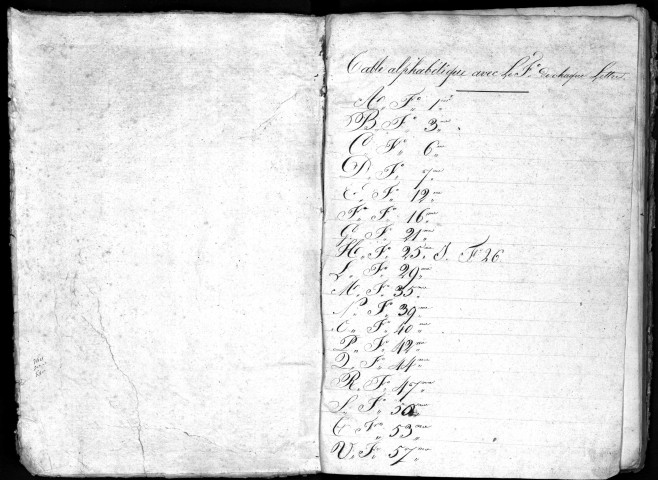 Table alphabétique avec le F.º de chaque Lettre
A. F. 1.er
B. F. 3.me
C. F. 6.me
D. F. 7.me
E. F. 12.me
F. F. 16.me
G. F. 21.me
H. F. 25.me J. F 26
L. F. 29.me
M. F. 35.me
N. F. 39.me
O. F. 40.me
P. F. 42.me
Q. F. 44.me
R. F. 47.me
S. F. 50.me
T. F. 53.me
V. F. 57.me